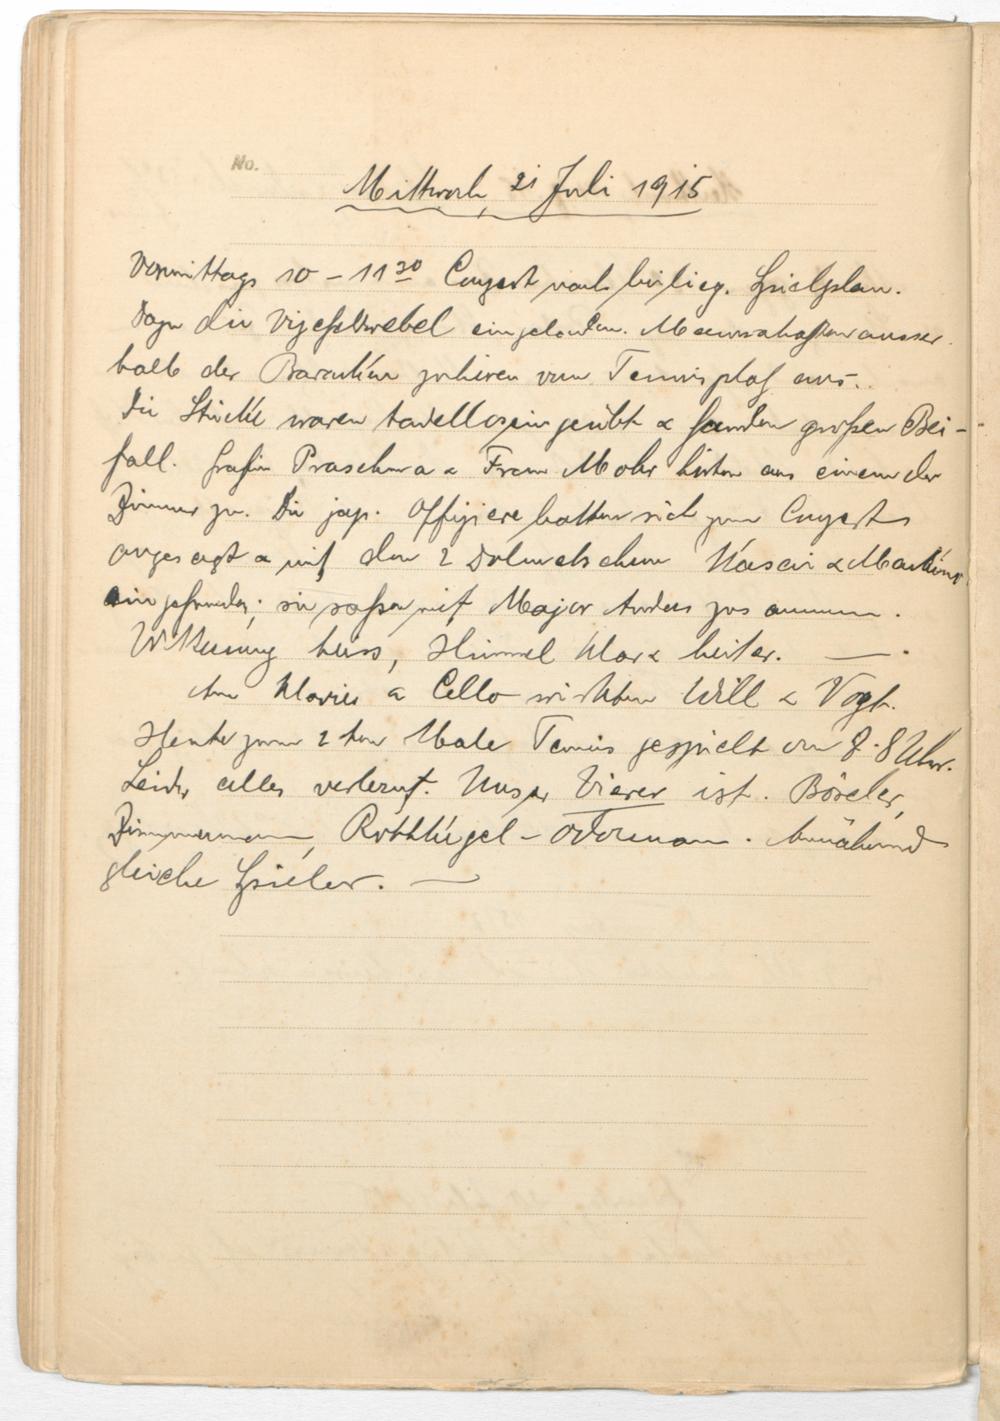 No.
Mittwoch, 21 Juli 1915
Vormittags 10 – 11 30 Conzert nach beilieg. Spielplan.
Dazu die Vizefeldwebel eingeladen. Mannschaften ausser
halb der Baracken zuhören vom Tennisplatz aus.
Die Stücke waren tadellos eingeübt & fanden großen Bei-
fall. Gräfin Praschma & Frau Mohr hörten aus einem der
Zimmer zu. Die jap. Offiziere hatten sich zum Conzert
angesagt & mit den 2 Dolmetschern Kasai &
eingefunden; sie saßen mit Major Anders zusammen.
Witterung heiss, Himmel klar & heiter. —
Am Klavier & Cello wirkten Will & Vogt.
Heute zum 2 ten Male Tennis gespielt von 7-8 Uhr.
Leider alles verlernt. Unser Vierer ist. Böseler,
Zimmermann, Rothkügel – Odermann. Annähernd
gleiche Spieler. —